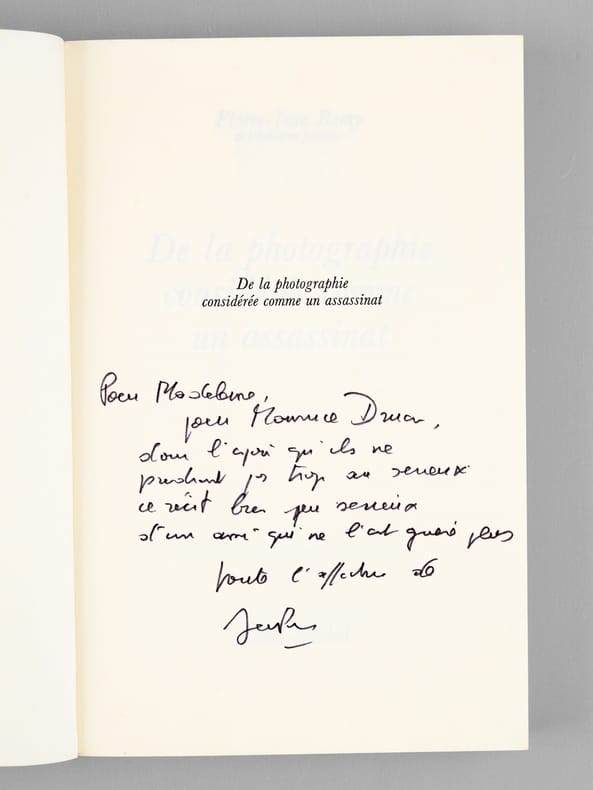 De la photographie
considérée comme un assassinat
Pour Madeleine,
pour Maurice Druon,
dans l'espoir qu'ils ne
prendront pas trop au sérieux
ce récit bien peu sérieux
d'un ami qui ne l'est guère plus
toute l'affection de